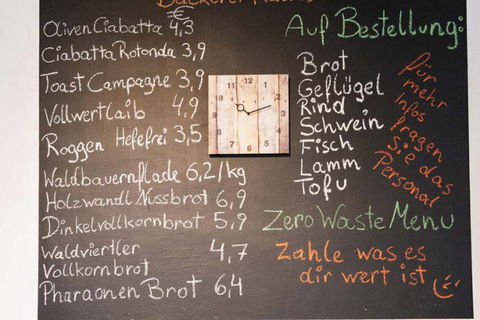 Oliven Ciabatta € 4,3
Ciabatta Rotonda 3,9
Toast Campagne 3,9
Vollwertlaib 4,9
Roggen Hefefrei 3,5
Waldbauernflade 6,2/kg
Holzwandl Nussbrot 6,9
Dinkelvollkornbrot 5,9
Waldviertler 4,7
Vollkornbrot
Pharaonen Brot 6,4
12
1
2
3
4
5
6
7
8
9
10
11
Auf Bestellung:
Brot
Geflügel
Rind
Schwein
Fisch
Lamm
Tofu
für
mehr
Infos
fragen
Sie das
Personal
Zero Waste Menu
Zahle was es
dir wert ist